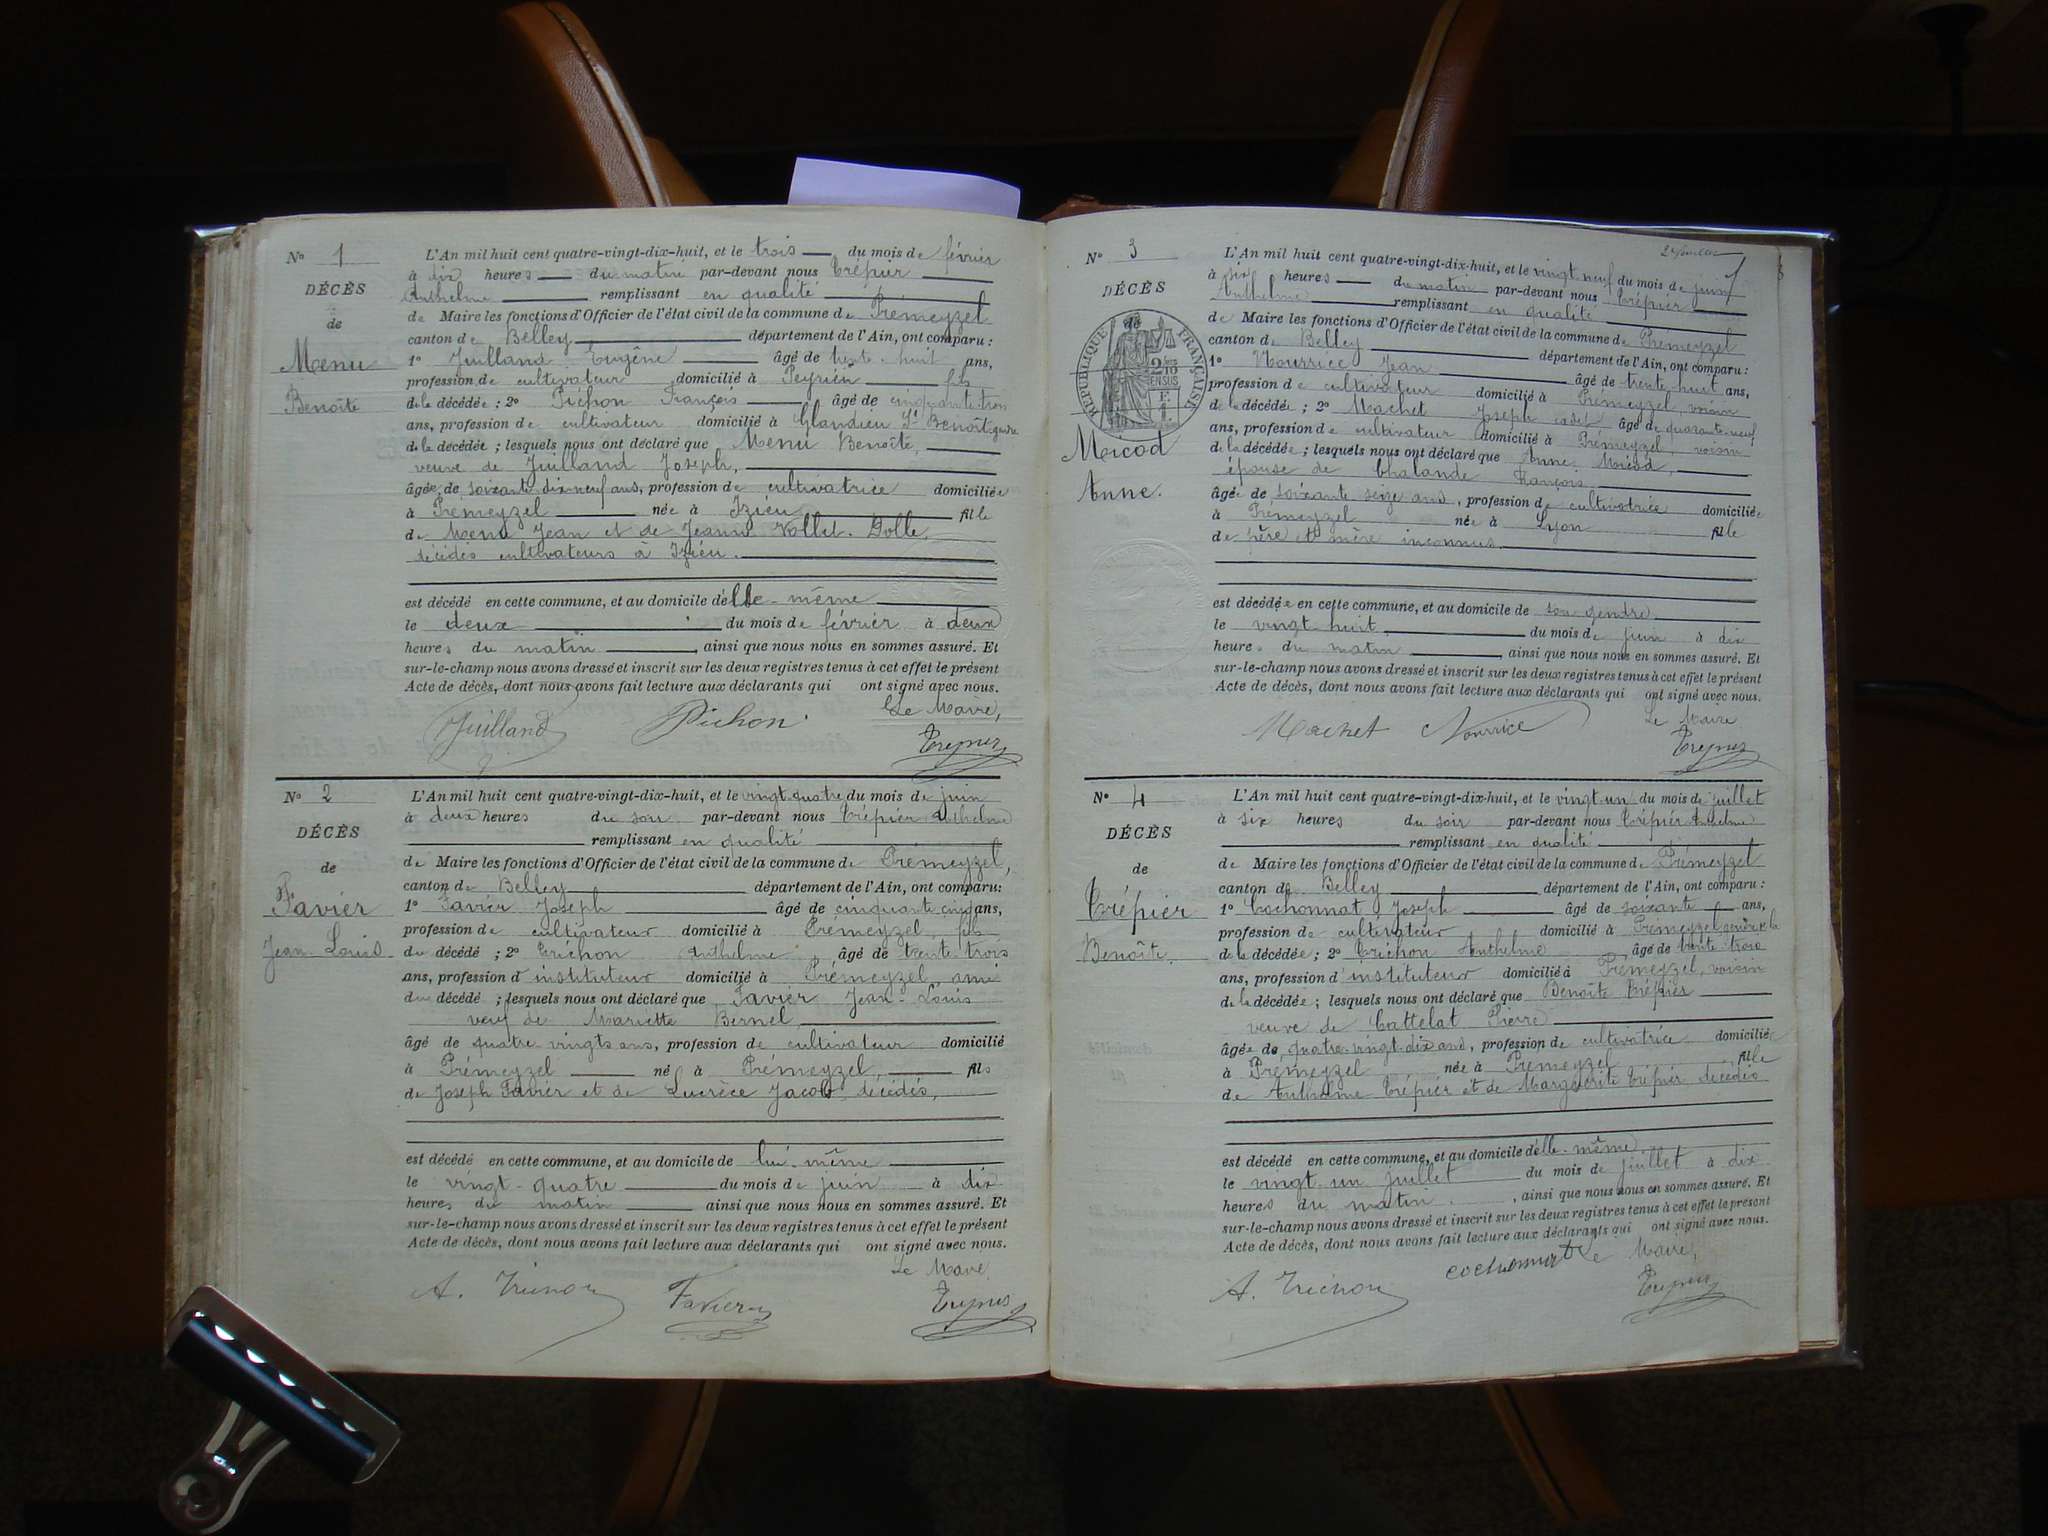 N° 1
DÉCÈS
de
Menu
Benoîte
L'An mil huit cent quatre-vingt-dix-huit, et le trois du mois de février
à dix heures du matin par-devant nous Trépier
Anthelme remplissant en qualité
de Maire les fonctions d'Officier de l'état civil de la commune de Prémeyzel
canton de Belley département de l'Ain, ont comparu :
1° Juilland Eugène âgé de trente-huit ans,
profession de cultivateur domicilié à Peyrieu fils
de la décédée ; 2° Pichon François âgé de cinquante-trois
ans, profession de cultivateur domicilié à Glandieu St Benoît gendre
de la décédée ; lesquels nous ont déclaré que Menu Benoîte,
veuve de Juilland Joseph,
âgée de soixante-dix-neuf ans, profession de cultivatrice domiciliée
à Prémeyzel née à Izieu fille
de Menu Jean et de Jeanne Vollet-Dolle,
décédés cultivateurs à Izieu.
est décédé en cette commune, et au domicile d'elle-même
le deux du mois de février à deux
heures du matin, ainsi que nous nous en sommes assuré. Et
sur-le-champ nous avons dressé et inscrit sur les deux registres tenus à cet effet le présent
Acte de décès, dont nous avons fait lecture aux déclarants qui ont signé avec nous.
Le Maire,
Juilland Pichon Trépier
N° 2
DÉCÈS
de
Favier
Jean Louis
L'An mil huit cent quatre-vingt-dix-huit, et le vingt-quatre du mois de juin
à deux heures du soir par-devant nous Trépier Anthelme
remplissant en qualité
de Maire les fonctions d'Officier de l'état civil de la commune de Prémeyzel,
canton de Belley département de l'Ain, ont comparu :
1° Favier Joseph âgé de cinquante cinq ans,
profession de cultivateur domicilié à Prémeyzel, fils
du décédé ; 2° Trichon Anthelme, âgé de trente-trois
ans, profession d'instituteur domicilié à Prémeyzel, ami
du décédé ; lesquels nous ont déclaré que Favier Jean-Louis
veuf de Mariette Bernel,
âgé de quatre-vingts ans, profession de cultivateur domicilié
à Prémeyzel né à Prémeyzel, fils
de Joseph Favier et de Lucrèce Jacob, décédés,
est décédé en cette commune, et au domicile de lui-même
le vingt-quatre du mois de juin à dix
heures du matin ainsi que nous nous en sommes assuré. Et
sur-le-champ nous avons dressé et inscrit sur les deux registres tenus à cet effet le présent
Acte de décès, dont nous avons fait lecture aux déclarants qui ont signé avec nous.
Le Maire,
A. Trichon Favier Trépier
2e feuillet
N° 3
DÉCÈS
de
RÉPUBLIQUE FRANÇAISE
Moicod
Anne.
L'An mil huit cent quatre-vingt-dix-huit, et le vingt-neuf du mois de juin
à six heures du matin par-devant nous Trépier
Anthelme remplissant en qualité
de Maire les fonctions d'Officier de l'état civil de la commune de Prémeyzel
canton de Belley département de l'Ain, ont comparu :
1° Nourrice Jean âgé de trente huit ans,
profession de cultivateur domicilié à Prémeyzel, voisin
de la décédée ; 2° Machet Joseph cadet âgé de quarante-neuf
ans, profession de cultivateur domicilié à Prémeyzel, voisin
de la décédée ; lesquels nous ont déclaré que Anne Moicod,
épouse de Chalande François
âgée de soixante seize ans, profession de cultivatrice domiciliée
à Prémeyzel née à Lyon fille
de père et mère inconnus.
est décédée en cette commune, et au domicile de son gendre
le vingt-huit du mois de juin à dix
heures du matin, ainsi que nous nous en sommes assuré. Et
sur-le-champ nous avons dressé et inscrit sur les deux registres tenus à cet effet le présent
Acte de décès, dont nous avons fait lecture aux déclarants qui ont signé avec nous.
Le Maire
Machet Nourrice Trépier
N° 4
DÉCÈS
de
Trépier
Benoîte.
L'An mil huit cent quatre-vingt-dix-huit, et le vingt-un du mois de juillet
à six heures du soir par-devant nous Trépier Anthelme
remplissant en qualité
de Maire les fonctions d'Officier de l'état civil de la commune de Prémeyzel
canton de Belley département de l'Ain, ont comparu :
1° Cochonnat Joseph âgé de soixante ans,
profession de cultivateur domicilié à Prémeyzel, gendre
de la décédée ; 2° Trichon Anthelme âgé de trente-trois
ans, profession d'instituteur domicilié à Prémeyzel, voisin
de la décédée ; lesquels nous ont déclaré que Benoîte Trépier
veuve de Cattelat Pierre
âgée de quatre-vingt-dix ans, profession de cultivatrice domiciliée
à Prémeyzel née à Prémeyzel fille
de Anthelme Trépier et de Marguerite Trépier décédés
est décédé en cette commune, et au domicile d'elle-même
le vingt-un juillet du mois de juillet à dix
heures du matin, ainsi que nous nous en sommes assuré. Et
sur-le-champ nous avons dressé et inscrit sur les deux registres tenus à cet effet le présent
Acte de décès, dont nous avons fait lecture aux déclarants qui ont signé avec nous.
cochonnat Le Maire,
A. Trichon Trépier